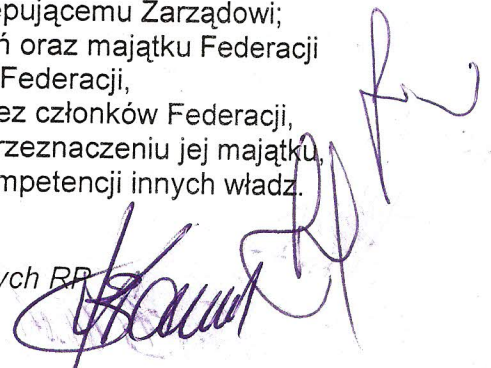 ępującemu Zarządowi;
ń oraz majątku Federacji
Federacji,
ez członków Federacji,
rzeznaczeniu jej majątku,
mpetencji innych władz.
ych RP